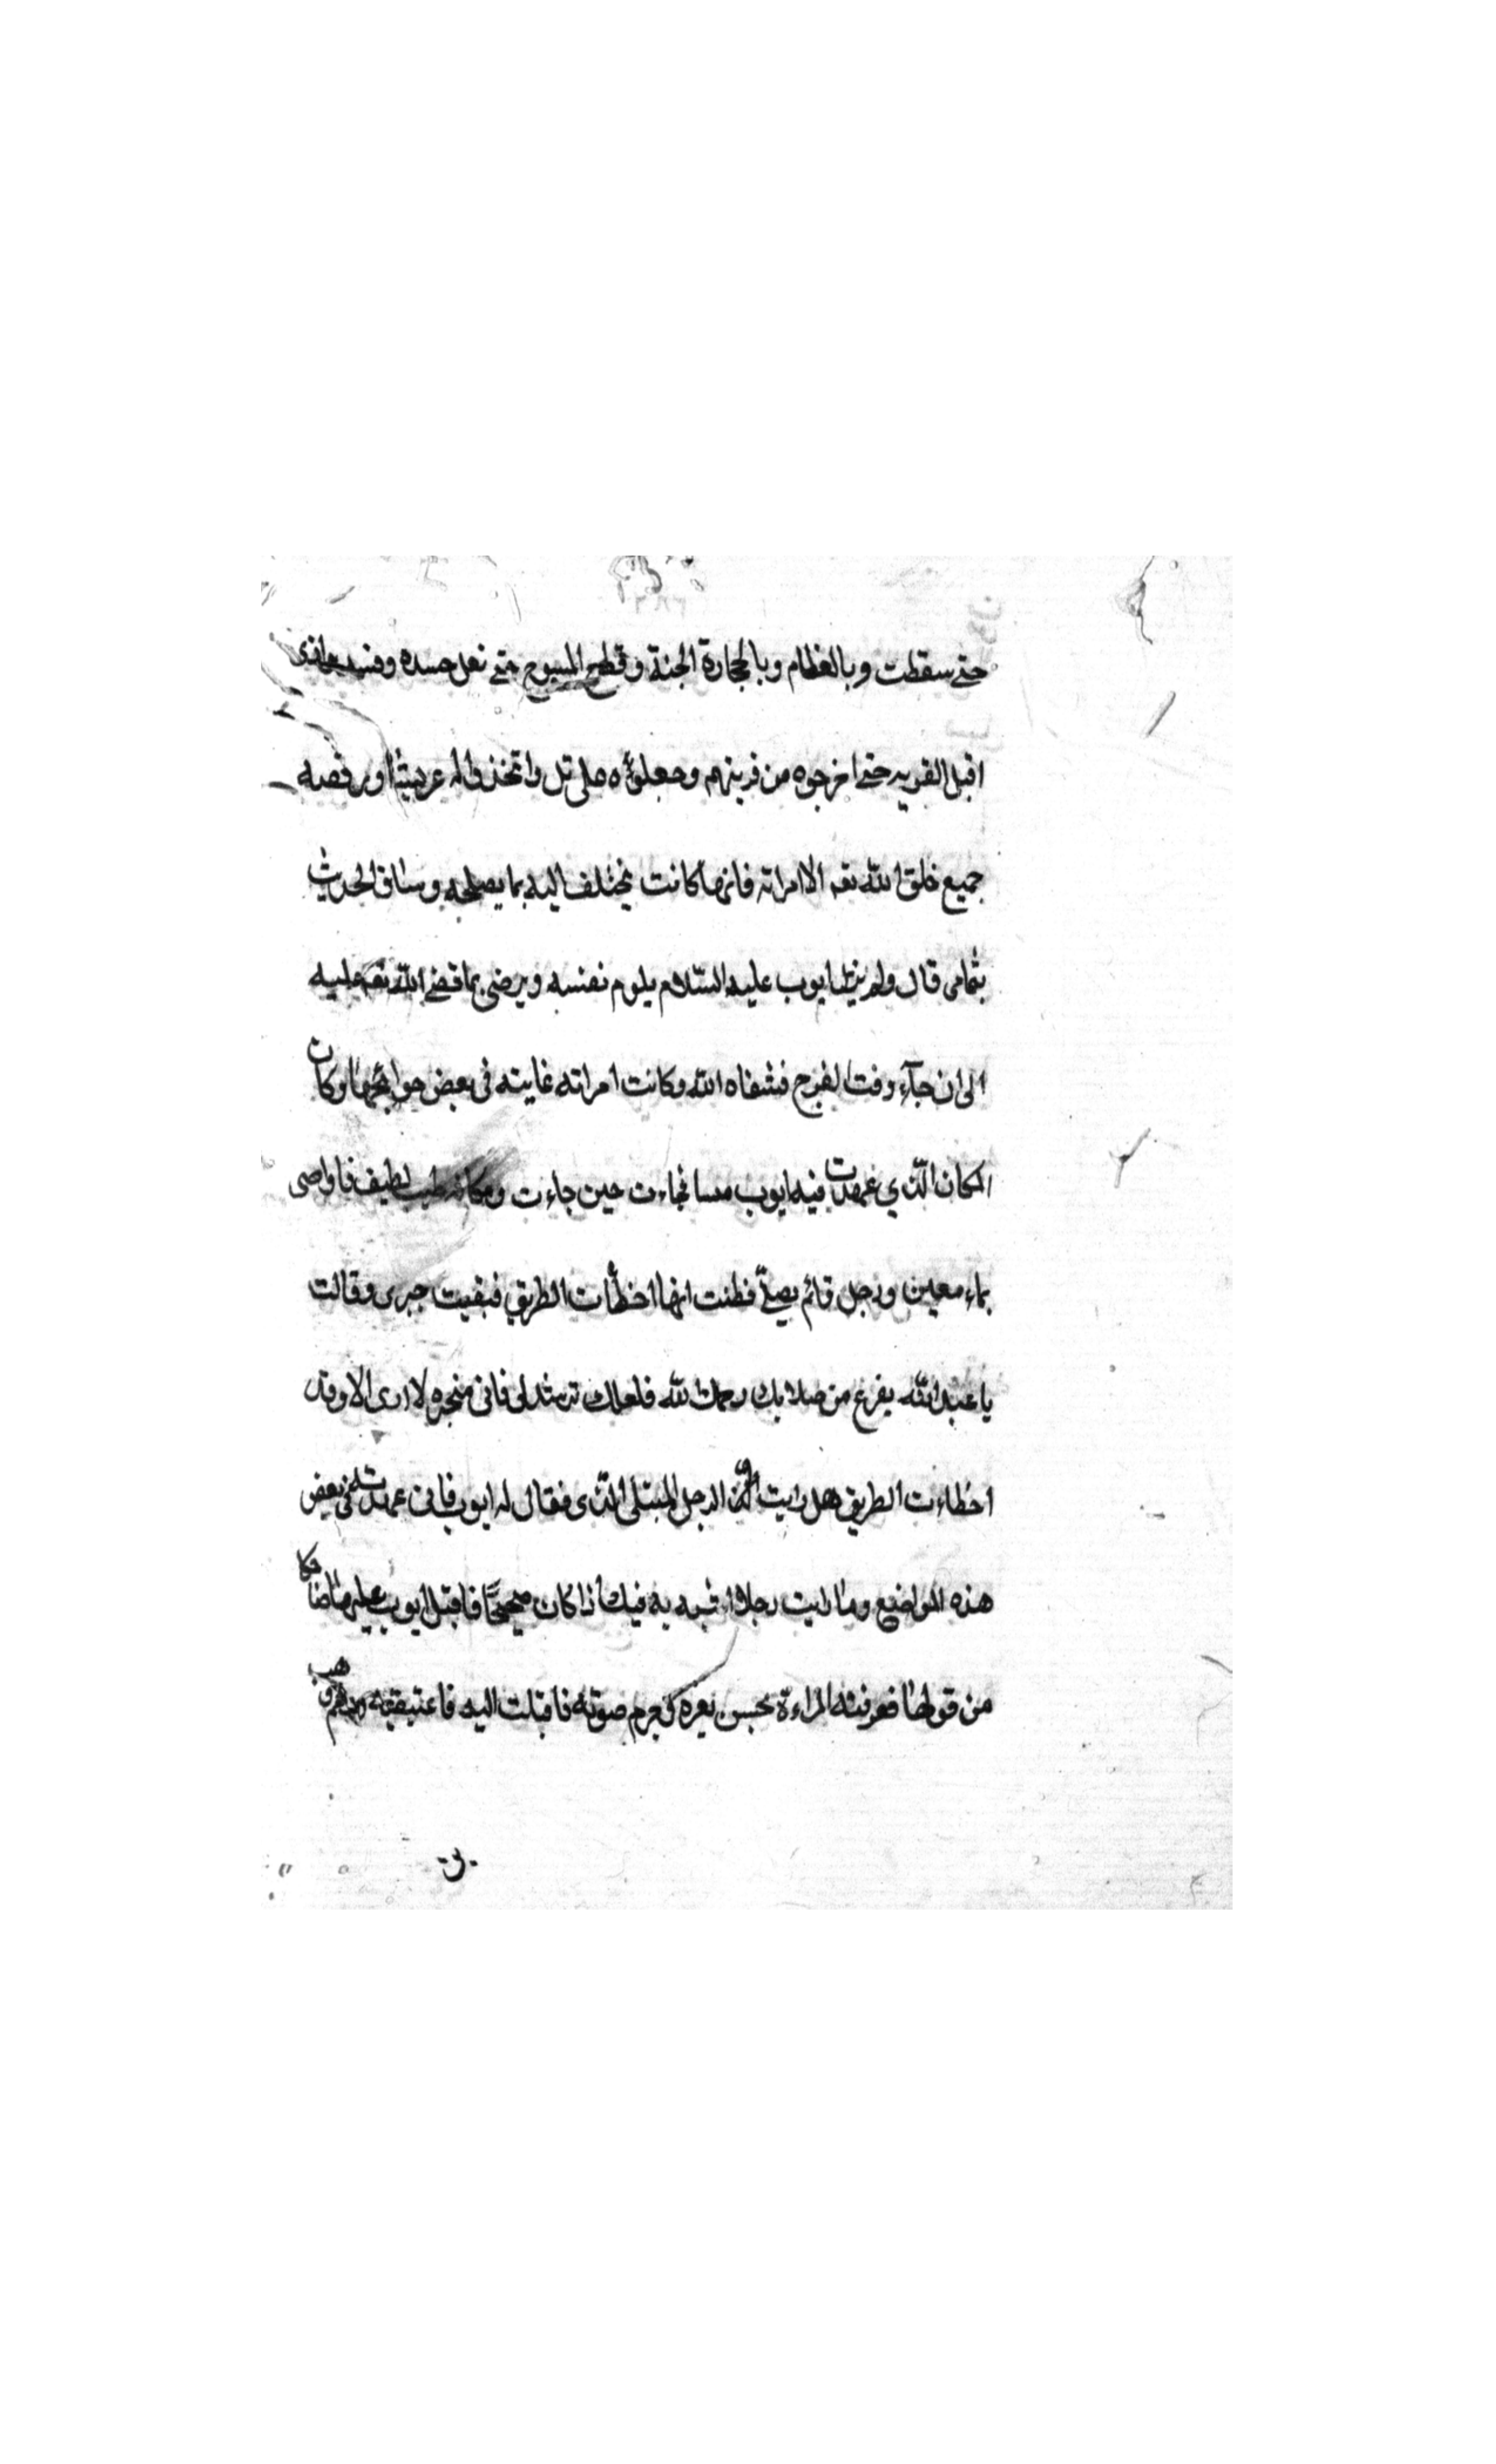 حتى سقطت وبالعظام وبالحجارة الجنة وقطع المسوح حتى نعل جسده وفسد
اقبل القريه حتى اخرجوه من قرينهم وجعلوه على تل واتخذوا له عريشا ورفضه
جميع خلق الله تعه الا امراته فانها كانت تختلف اليه بما يصلحه وساق الحديث
بتمامى قال ولم يزل ايوب عليه السّلام يلوم نفسه ويرضى بما قضى الله تعه عليه
الى ان جآء وقت الفرج فشفاه الله وكانت امراته غايبته فى بعض حوايجها وكان
المكان الّذي عهدت فيه ايوب مسا فجاءت حين جاءت ومكانه طيب لطيف فاواصى
بماء معين ورجل قائم يصلّى فظنت انها اخطأت الطريق فبقيت حيرى وقالت
يا عبد الله يفرغ من صلاتك رحمك الله فلعلك ترشدلى فانى متحيره لا ارى الا وقد
اخطاءت الطريق هل رايت الرجل المبتلى الّذى فقال له ايوب فانى عهدت فى بعض
هذه المواضع وما رايت رجلا اشبه به فيك اذا كان صحيحًا فاقبل ايوب عليها ضاحكا
من قولها فعرفته المراءة بحسن نعره كى يعرم صوته فاقبلت اليه فاعتنقته